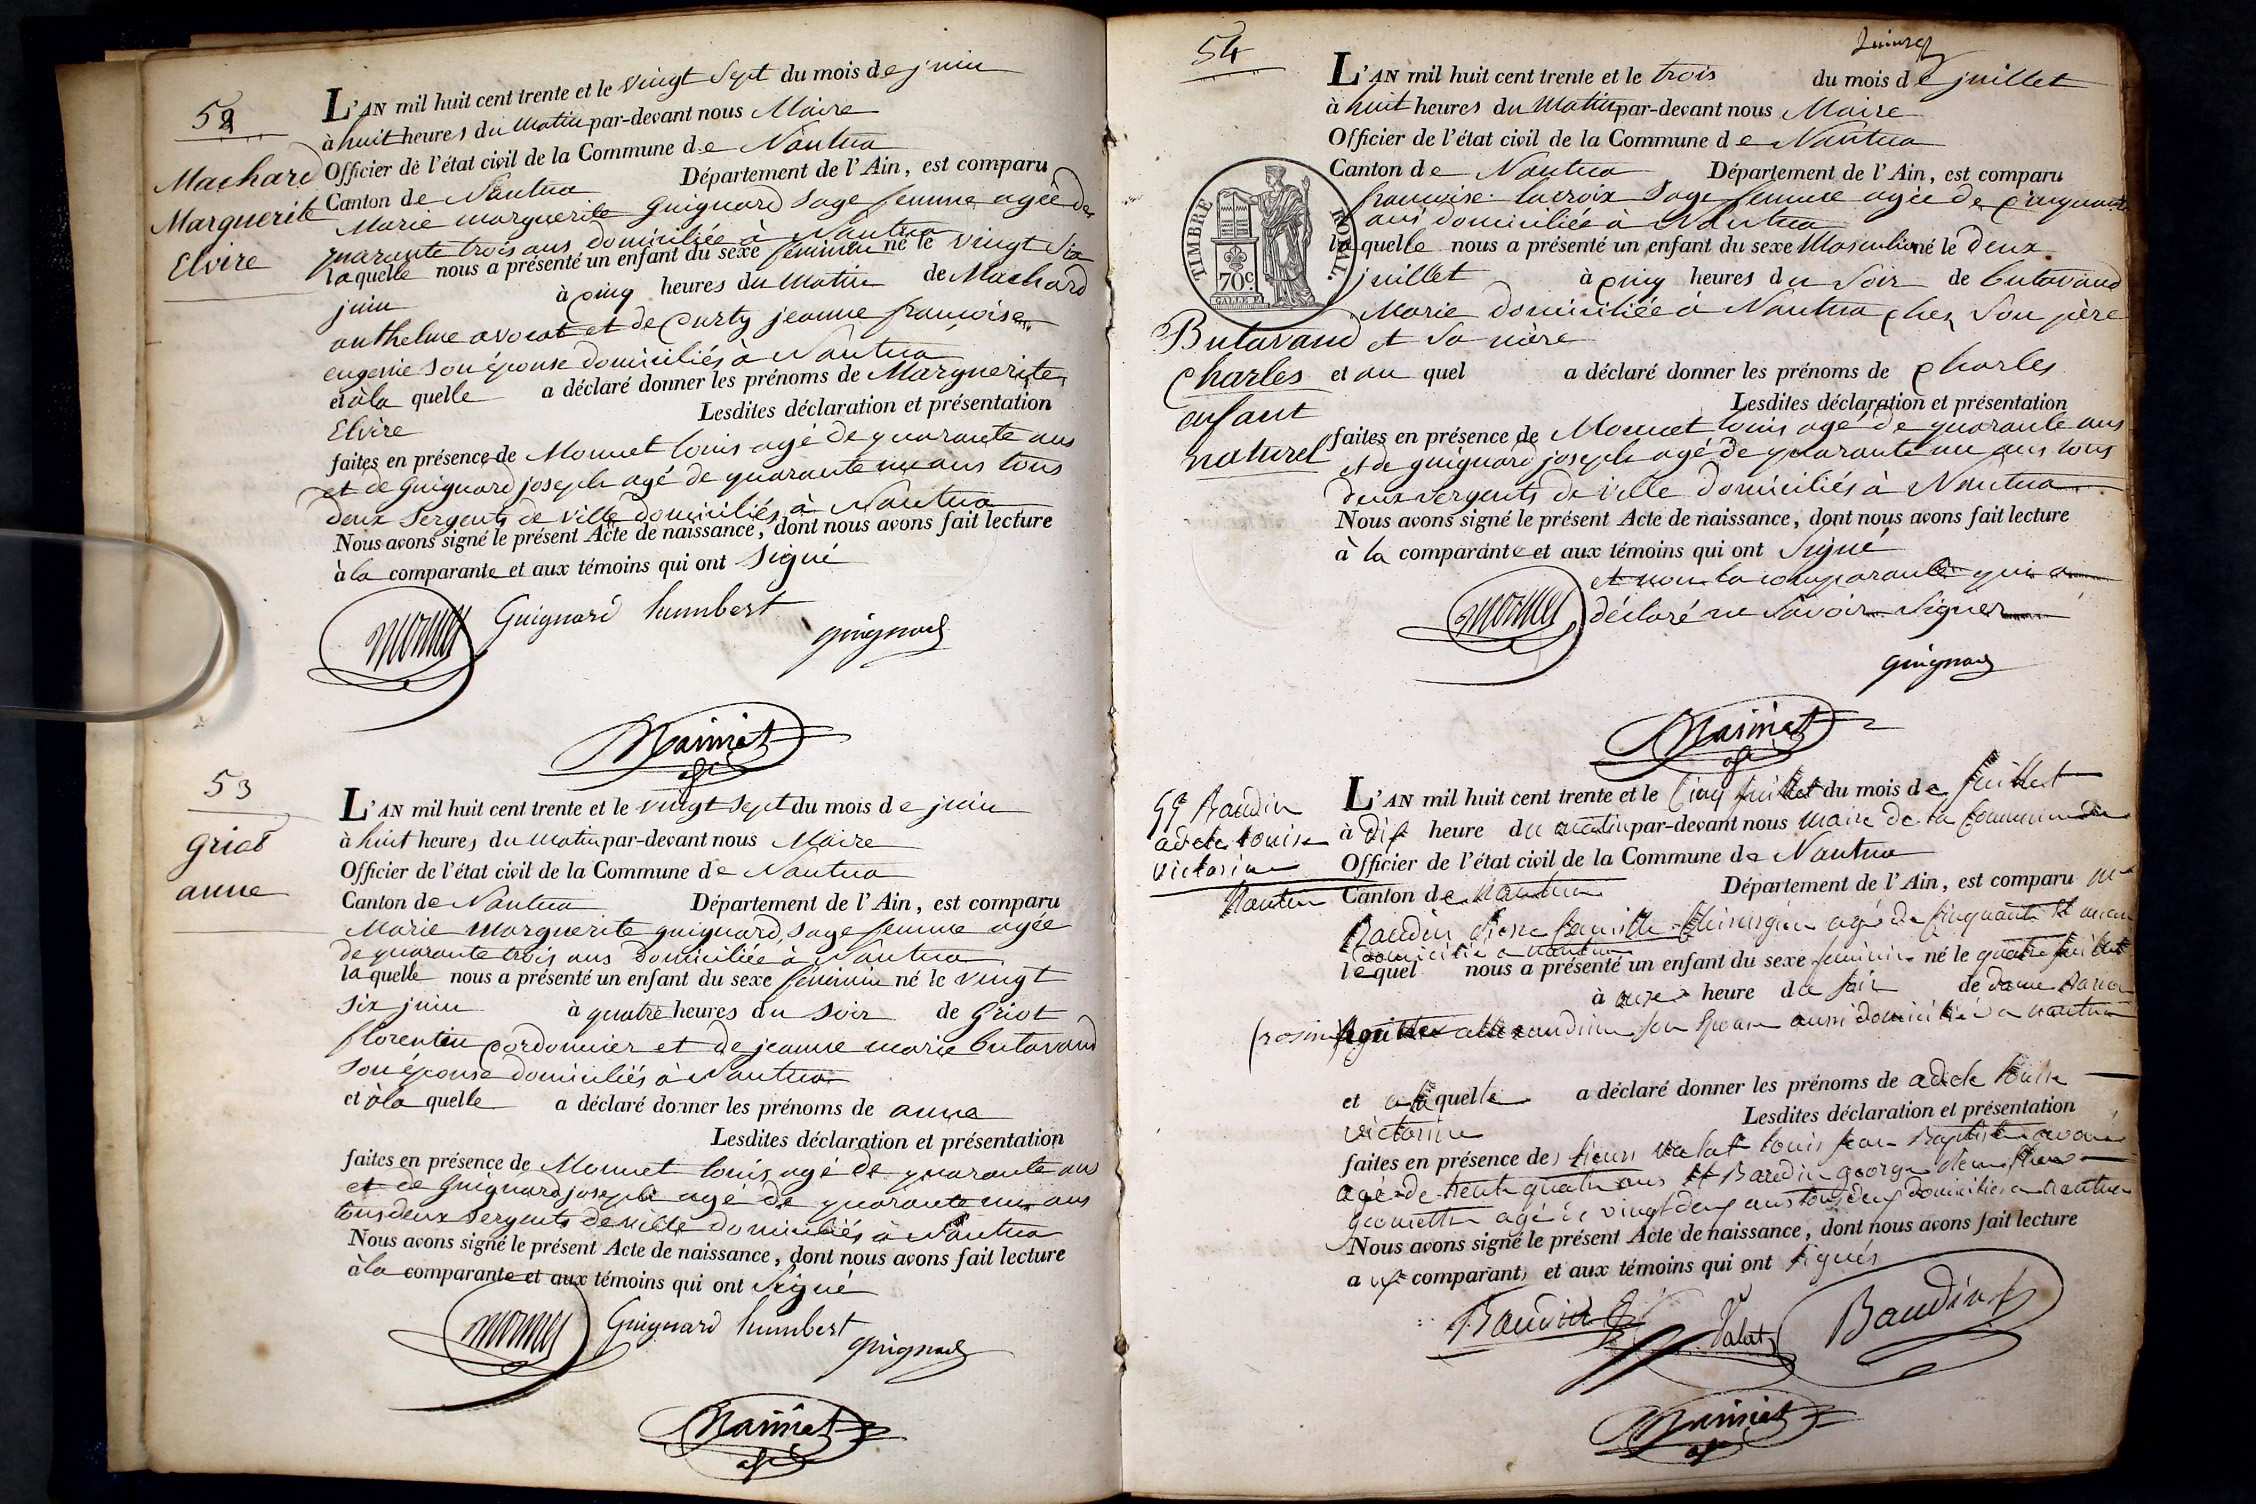 52
Machard
Marguerite
Elvire
L'AN mil huit cent trente et le vingt Sept du mois de juin
à huit heures du matin par-devant nous Maire
Officier de l'état civil de la Commune de Nantua
Canton de Nantua Département de l'Ain, est comparu
Marie marguerite Guignard Sage femme agée de
quarante trois ans domiciliée à Nantua
laquelle nous a présenté un enfant du sexe féminin né le vingt Six
juin à cinq heures du matin de Machard
anthelme avocat et de Curty jeanne françoise
eugenie Son épouse domiciliés à Nantua
et à la quelle a déclaré donner les prénoms de Marguerite
Elvire Lesdites déclaration et présentation
faites en présence de Monnet louis agé de quarante ans
et de Guignard joseph agé de quarante un ans tous
deux Sergents de ville domiciliés à Nantua
Nous avons signé le présent Acte de naissance, dont nous avons fait lecture
à la comparante et aux témoins qui ont Signé
monnet Guignard humbert guignard
53
griot
anne
L'AN mil huit cent trente et le vingt Sept du mois de juin
à huit heures du matin par-devant nous Maire
Officier de l'état civil de la Commune de Nantua
Canton de Nantua Département de l'Ain, est comparu
Marie Marguerite guignard, sage femme agée
de quarante trois ans domiciliée à Nantua
la quelle nous a présenté un enfant du sexe féminin né le vingt
six juin à quatre heures du soir de Griot
florentin cordonnier et de jeanne marie butavand
Son épouse domiciliés à Nantua
et à la quelle a déclaré donner les prénoms de anna
Lesdites déclaration et présentation
faites en présence de Monnet louis agé de quarante ans
et de Guignard joseph agé de quarante un ans
tous deux Sergents de ville domiciliés à Nantua
Nous avons signé le présent Acte de naissance, dont nous avons fait lecture
à la comparante et aux témoins qui ont Signé
monnet Guignard humbert guignard
54
TIMBRE ROYAL.
70c
Butavand
Charles
enfant
naturel
L'AN mil huit cent trente et le trois du mois de juillet
à huit heures du Matin par-devant nous Maire
Officier de l'état civil de la Commune de Nantua
Canton de Nantua Département de l'Ain, est comparu
françoise lacroix Sage femme agée de cinquante
ans domiciliée à Nantua
laquelle nous a présenté un enfant du sexe Masculin né le deux
juillet à cinq heures du Soir de butavand
Marie domiciliée à Nantua chez Son père
et Sa mère
et au quel a déclaré donner les prénoms de Charles
Lesdites déclaration et présentation
faites en présence de Monnet louis agé de quarante ans
et de guignard joseph agé de quarante un ans tous
deux sergents de ville domiciliés à Nantua
Nous avons signé le présent Acte de naissance, dont nous avons fait lecture
à la comparante et aux témoins qui ont Signé
et non la comparante qui a
monnet déclaré ne Savoir Signer
guignard
Baudin
adele louise
victorine
Nantua
L'AN mil huit cent trente et le Cinq juillet du mois de juillet
à dix heure du matin par-devant nous maire de la Commune de
Officier de l'état civil de la Commune de Nantua
Canton de Nantua Département de l'Ain, est comparu Mr
Baudin Chirurgien agé de Cinquante
domicilié a Nantua
lequel nous a présenté un enfant du sexe feminin né le quatre juillet
à onze heure du soir de dame
alexandrine son Epouse aussi domiciliée a nantua
et a la quelle a déclaré donner les prénoms de adele louise
victorine Lesdites déclaration et présentation
faites en présence des sieurs Valat louis jean Baptiste avoué
agé de trente quatre ans et Baudin george
geometre agé de vingt deux ans tous deux domiciliés a nantua
Nous avons signé le présent Acte de naissance, dont nous avons fait lecture
comparants et aux témoins qui ont signés
Baudin Valat Baudin